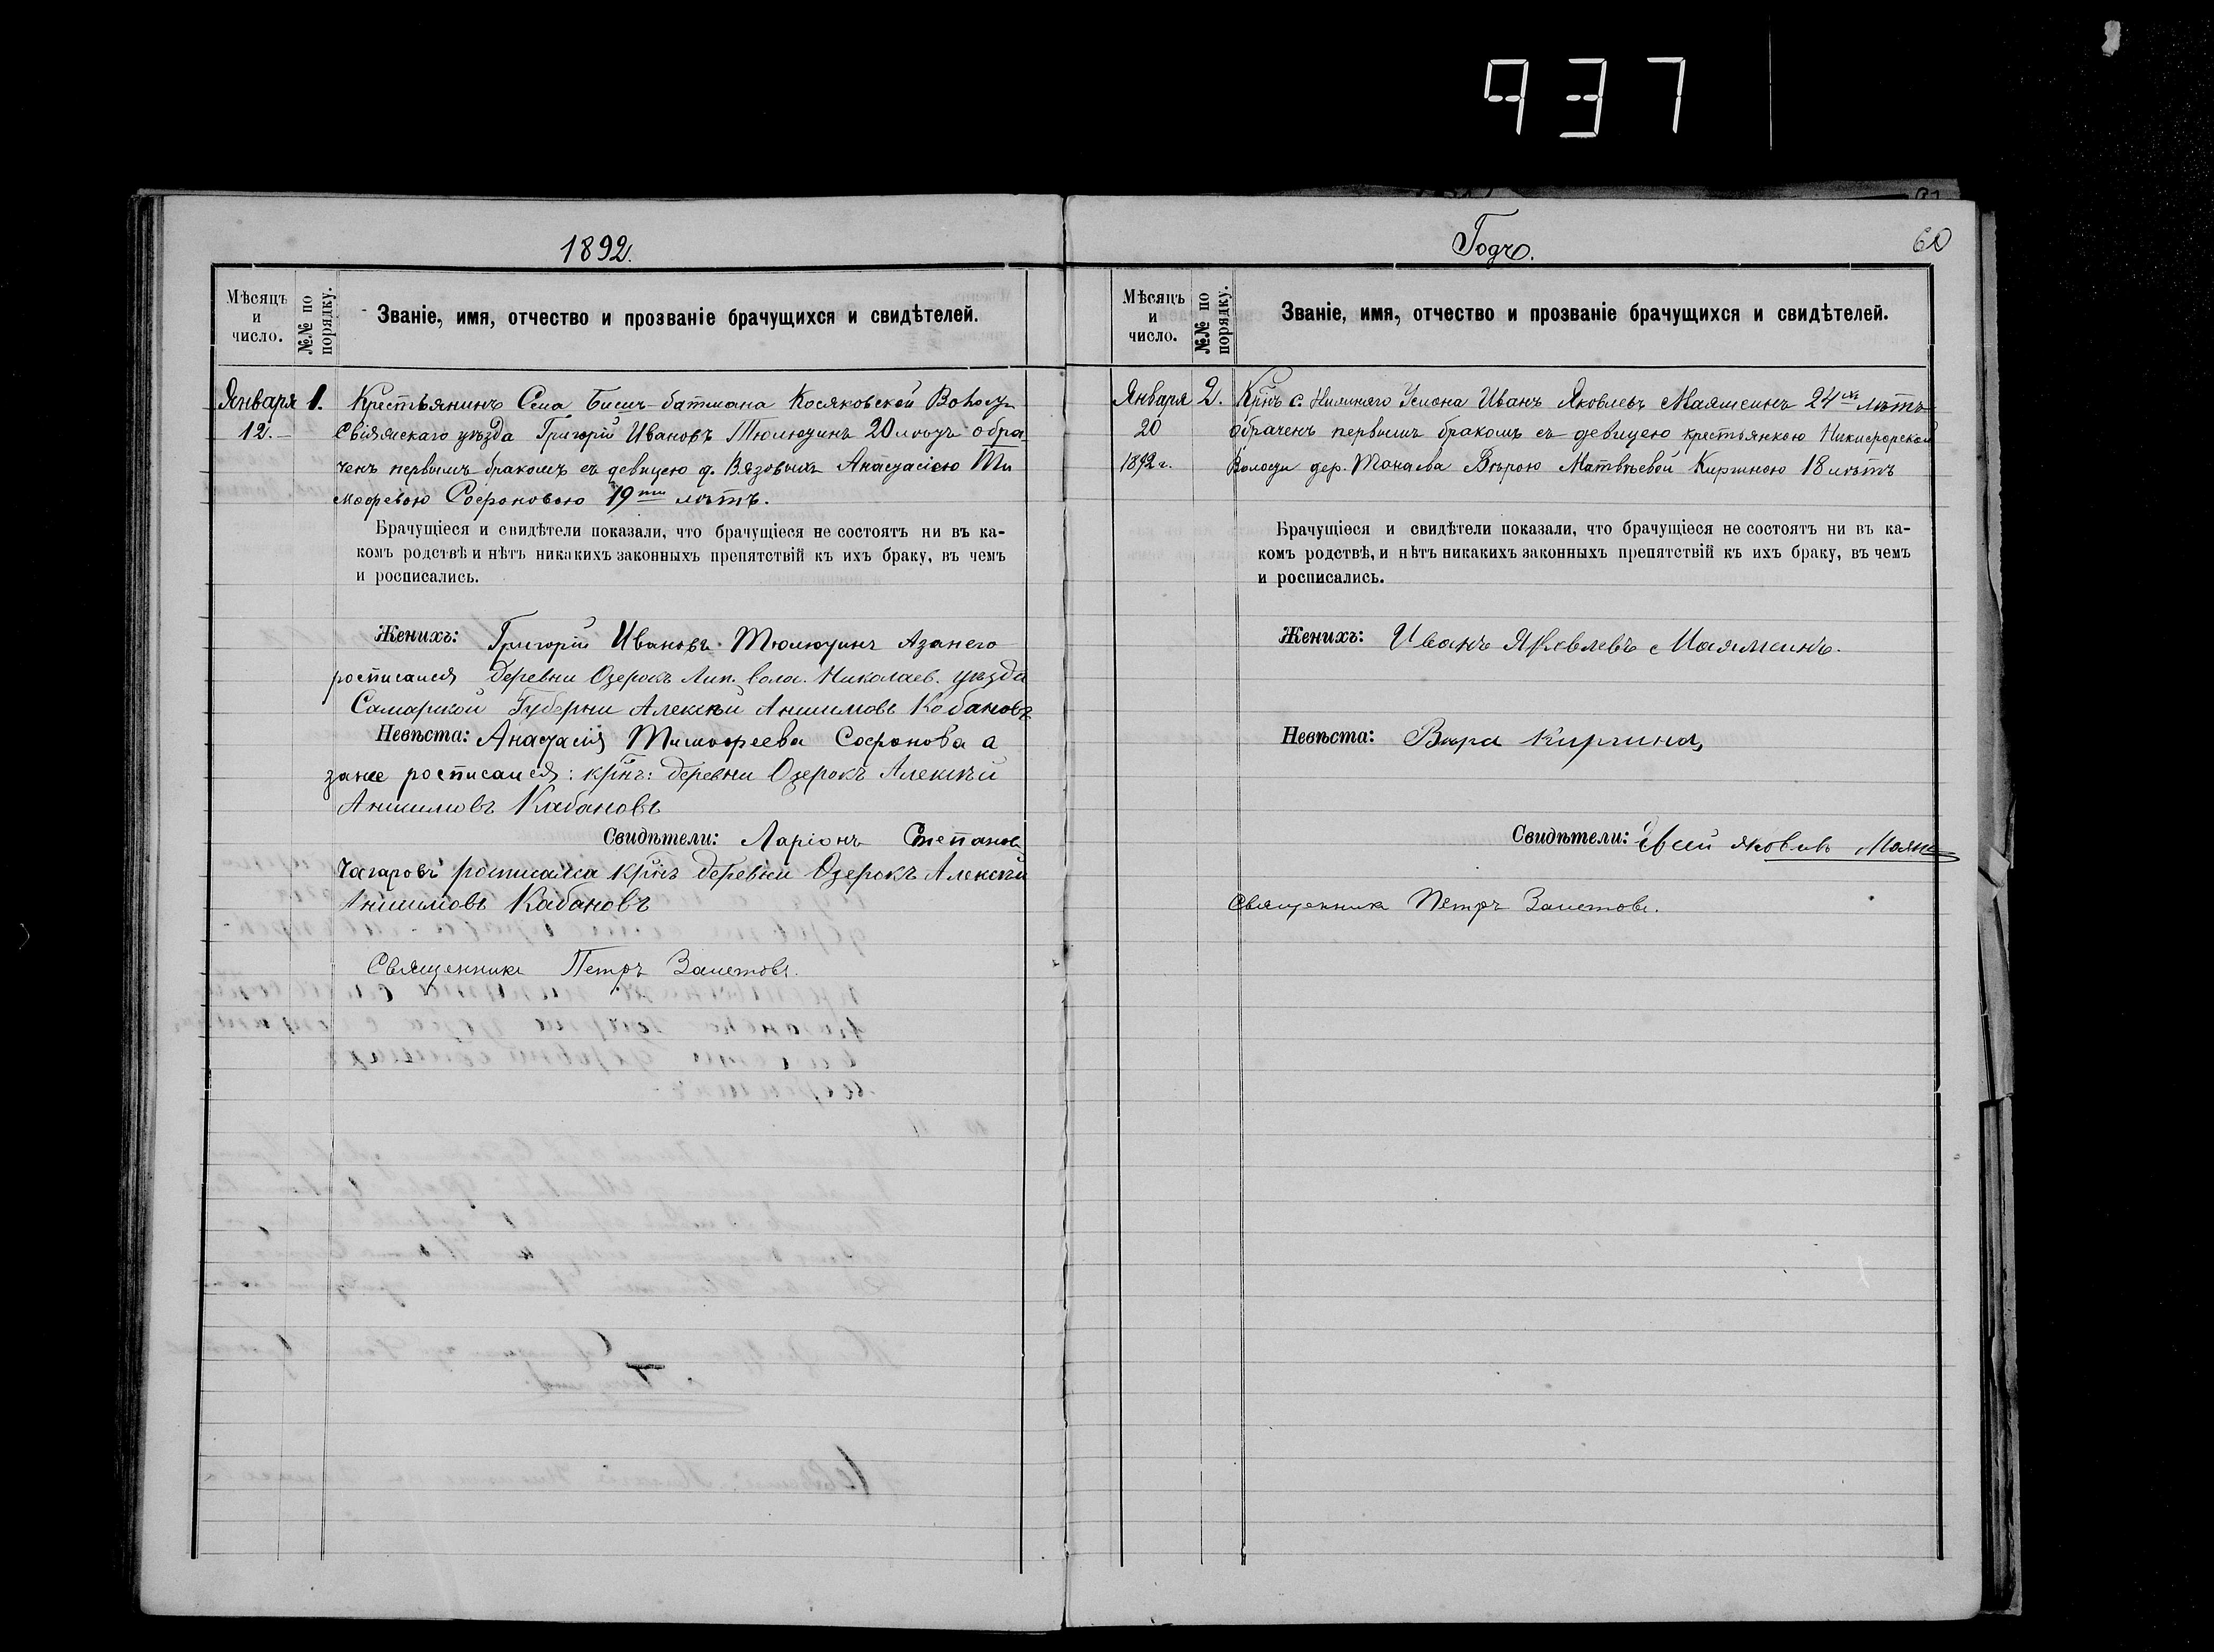 937
1892.
Мѣсяцъ и число.
№.№ по порядку.
Званіе, имя, отчество и прозваніе брачущихся и свидѣтелей.
Января 1. Крестьянинъ Села Бишь-батмана Косяковской Волости
12. Свіяжскаго уѣзда Григорій Ивановъ Тюлюзинъ 20 лѣтъ обра
ченъ первымъ бракомъ съ девицею д. Вязовыхъ Анастасіею Ти
мофевою Софоновою 19ти лѣтъ.
Брачущіеся и свидѣтели показали, что брачущіеся не состоятъ ни въ ка-
комъ родствѣ и нѣтъ никакихъ законныхъ препятствій къ ихъ браку, въ чемъ
и росписались.
Женихъ: Григорій Ивановъ Тюлюзинъ Азанего
росписался деревни Озерокъ Лип. вол. Николаев. уѣзда
Самарской Губерни Алексѣй Анисимовъ Кабановъ
Невѣста: Анастасия Тимофеева Софонова а
занее росписался: крнъ: деревни Озерокъ Алексѣй
Анисимовъ Кабановъ
Свидѣтели: Ларіонъ Степанов
росписался крнъ деревни Озерокъ Алексѣй
Анисимовъ Кабановъ
Священникъ Петръ
Годъ.
60
Мѣсяцъ и число.
№.№ по порядку.
Званіе, имя, отчество и прозваніе брачущихся и свидѣтелей.
Января 2. Крнъ с. Нижняго Услона Иванъ Яковлевъ Маямсинъ 24хъ лѣтъ
20 обраченъ первымъ бракомъ съ девицею крестьянкою Никифорской
1892 г. Волости дер. Танаева Вѣрою Матвѣевой Киргиною 18 лѣтъ
Брачущіеся и свидѣтели показали, что брачущіеся не состоятъ ни въ ка-
комъ родствѣ, и нѣтъ никакихъ законныхъ препятствій къ ихъ браку, въ чемъ
и росписались.
Женихъ: Иванъ Яковлевъ Маямсинъ.
Невѣста: Вѣра Киргина
Свидѣтели:
Священникъ Петръ